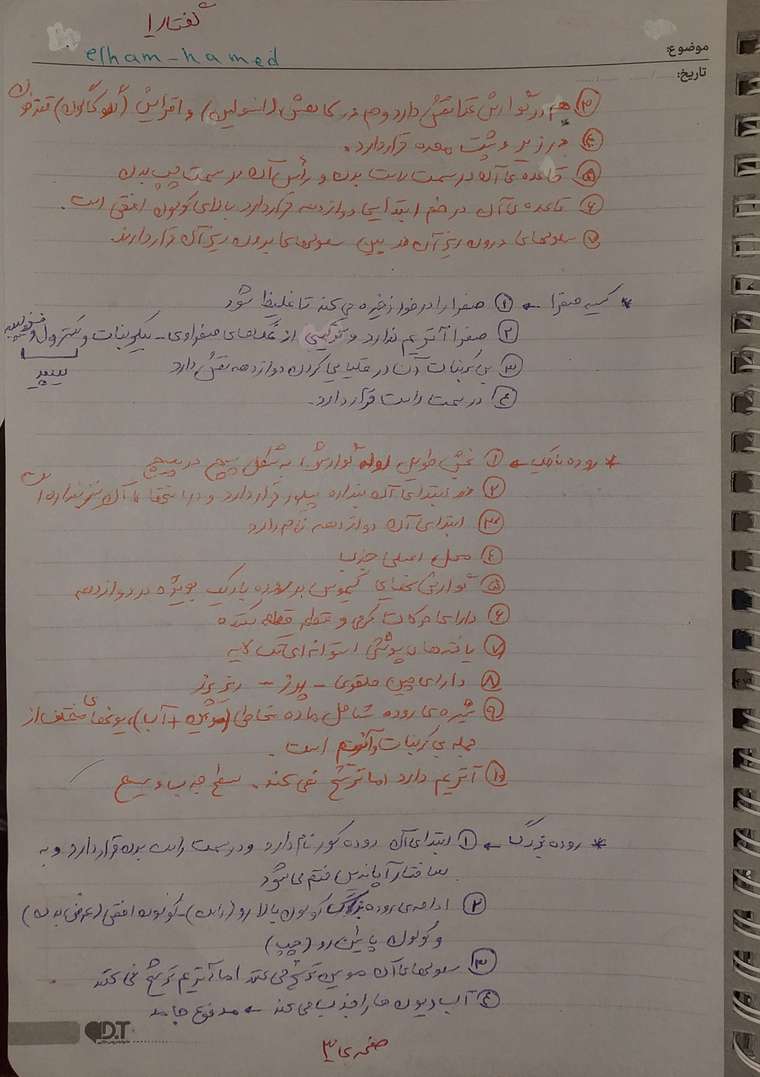 گفتار ۱
elham-hamed
موضوع:
تاریخ:
③ هم در گوارش غذا نقش دارد و هم در کاهش (انسولین) و افزایش (گلوکاگون) قند خون
④ در زیر و پشت معده قرار دارد.
⑤ قاعده‌ی آن در سمت راست بدن و رأس آن در سمت چپ بدن
⑥ قاعده‌ی آن در خم ابتدایی دوازدهه قرار دارد بالای کولون افقی است.
⑦ سلولهای درون ریز آن در بین سلولهای برون ریز آن قرار دارند.
* کیسه صفرا ← ① صفرا را در خود ذخیره می‌کند تا غلیظ شود
② صفرا آنزیم ندارد و ترکیبی از نمک‌های صفراوی - بیکربنات و کلسترول و فسفولیپید
لیپید
③ بی کربنات آن در قلیایی کردن دوازدهه نقش دارد
④ در سمت راست قرار دارد.
* روده باریک ← ① بخش طویل لوله گوارش، به شکل پیچ در پیچ
② در ابتدای آن بنداره پیلور قرار دارد و در انتهای آن نیز بنداره
③ ابتدای آن دوازدهه نام دارد
④ محل اصلی جذب
⑤ گوارش نهایی کیموس در روده باریک بویژه در دوازدهه
⑥ دارای حرکات کرمی و قطعه قطعه کننده
⑦ یاخته های پوششی استوانه ای تک لایه
⑧ دارای چین حلقوی - پرز - ریزپرز
⑨ شیره‌ی روده شامل ماده مخاطی (موسین + آب)، یونهای مختلف از
جمله بی کربنات و آنزیم است.
⑩ آنزیم دارد اما ترشح نمی کند. سطح جذب وسیع
* روده بزرگ ← ① ابتدای آن روده کور نام دارد و در سمت راست بدن قرار دارد و به
ساختار آپاندیس ختم می شود
② ادامه‌ی روده بزرگ کولون بالارو (راست) - کولون افقی (عرض بدن)
و کولون پایین رو (چپ)
③ سلولهای آن موسین ترشح می‌کنند اما آنزیم ترشح نمی کنند
④ آب و یون ها را جذب می کند ← مدفوع جامد
D.T
صفحه‌ی ۳